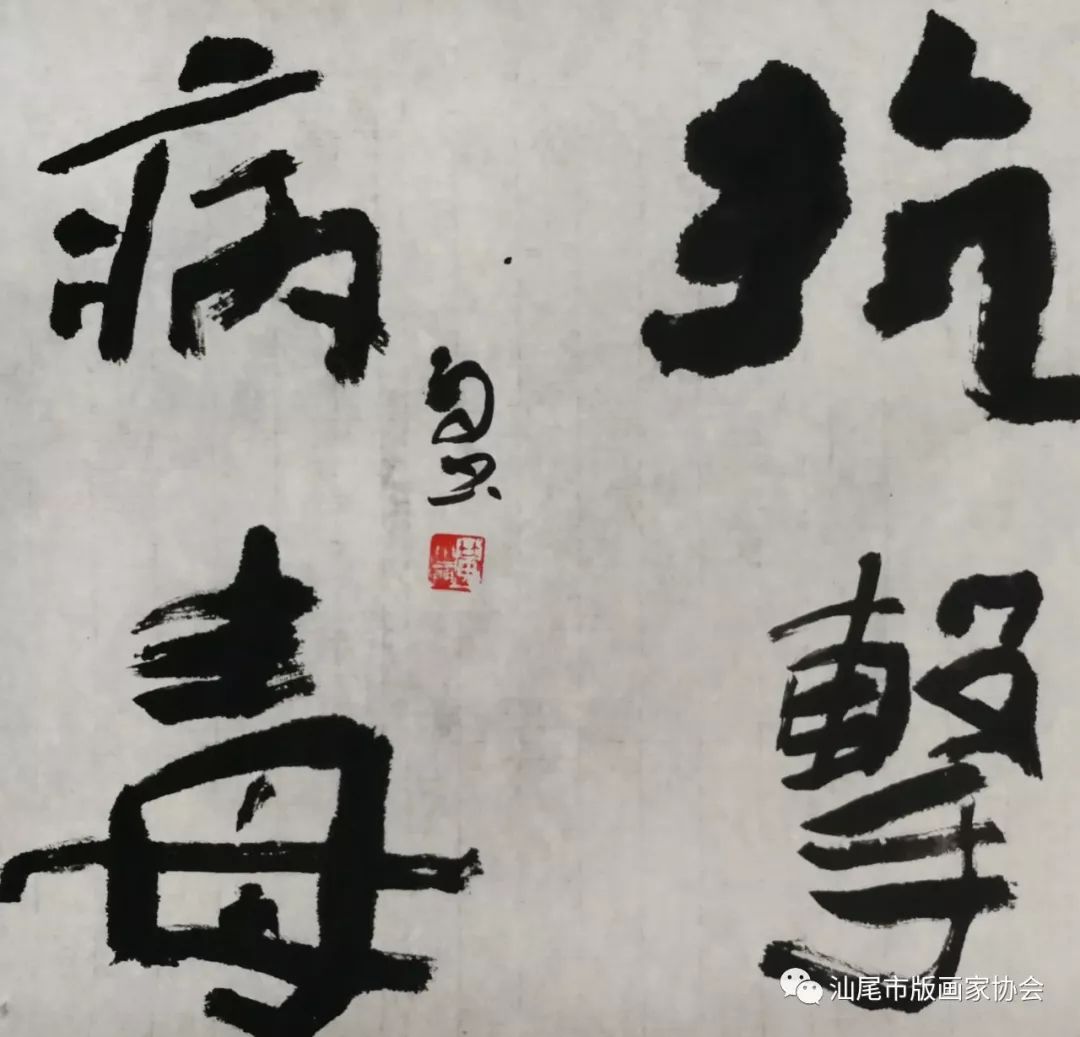 抗擊
病毒
汕尾市版画家协会